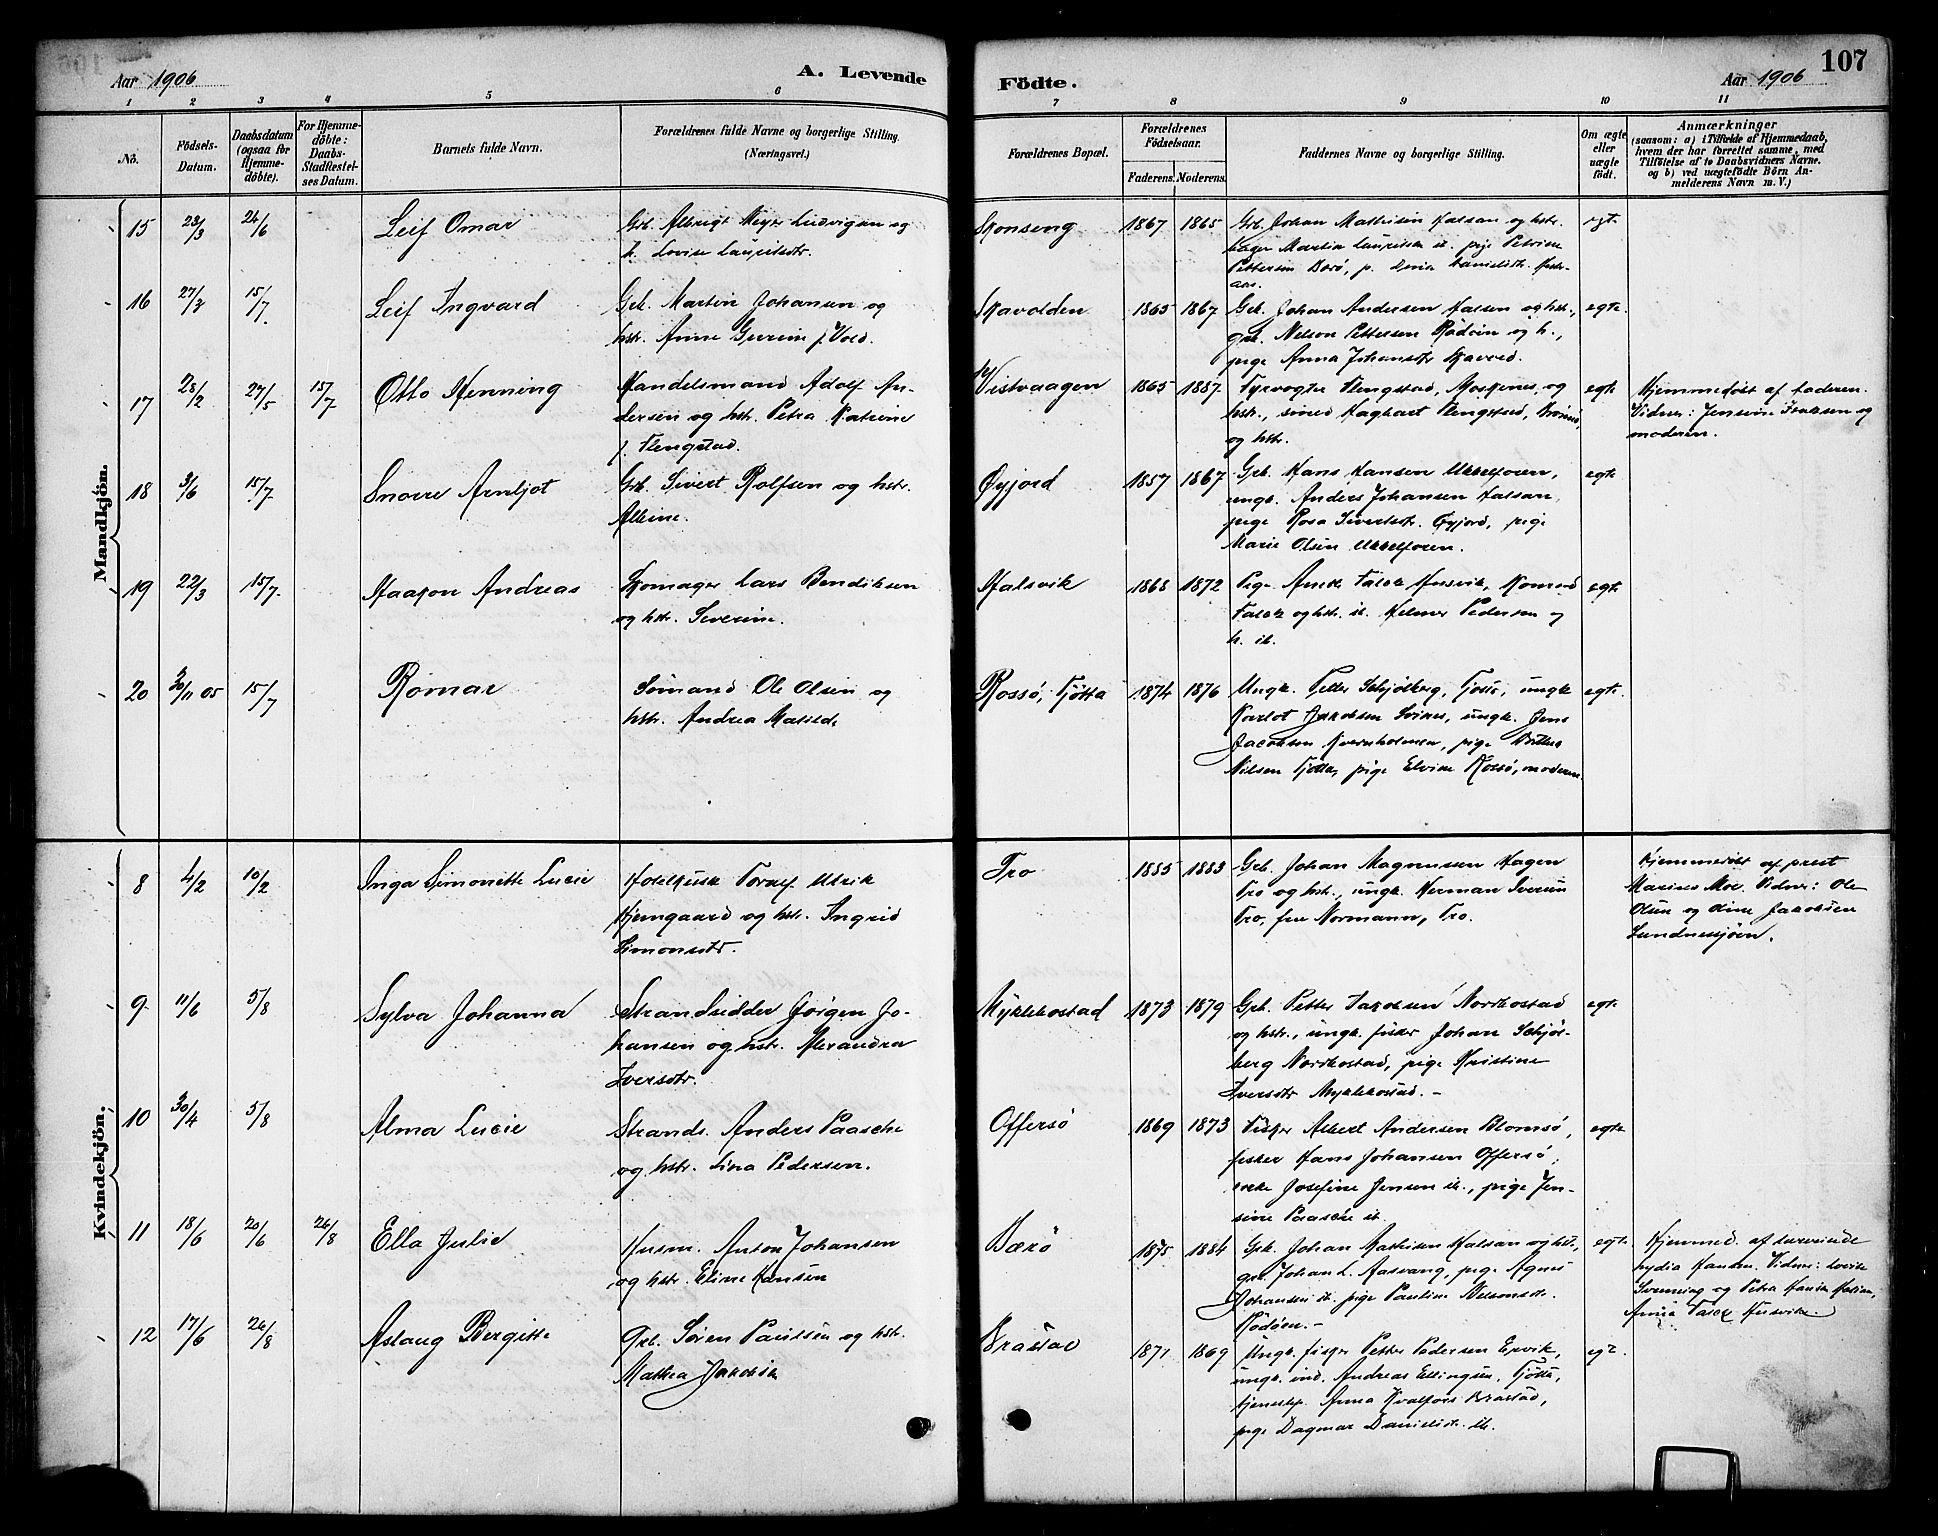 107
Aar 1906
A. Levende
Födte.
Aar 1906
1 2 3 4 5 6 7 8 9 10 11
No.
Födsels-
Datum.
Daabsdatum
(ogsaa for
Hjemme-
döbte).
For Hjemme-
döbte:
Daabs-
Stadfæstel-
ses Datum.
Barnets fulde Navn.
Forældrenes fulde Navne og borgerlige Stilling.
(Næringsvei.)
Forældrenes Bopæl.
Forældrenes
Födselsaar.
Faderens. Moderens.
Faddernes Navne og borgerlige Stilling.
Om ægte
eller
uægte
födt.
Anmærkninger
(saasom: a) i Tilfælde af Hjemmedaab,
hvem der har forrettet samme, med
Tilföielse af to Daabsvidners Navne.
og b) ved uægtefödte Börn An-
melderens Navn m. V.)
Mandkjön.
15 23/3 24/6 Leif Omar
Grb. Albrigt Meyer Ludvigsen og
h. Lovise Lauritsdtr.
Skonseng 1867 1865
Grb. Johan Mathisen Halsan og hstr.
Martin Lauritsen ib. pige Petrine
Pettersen Bærø, p.
egt.
16 27/3 15/7 Leif Ingvard
Grb. Martin Johansen og
hstr. Anne Severine f. Vold.
Skavolden 1865 1867
Grb. Johan Andersen Halsen og hstr.,
grb. Nelson Pettersen Rödöen og h.,
pige Anna Johansdtr
egte.
17 28/2 27/5 15/7 Otto Henning
Handelsmand Adolf An-
dersen og hstr. Petra Katrine
f. Flengstad.
Vistvaagen 1865 1887
Fyrvogter Flengstad, Moskenes, og
hstr., Flengstad,
og hstr.
egte
Hjemmedöbt af faderen.
Vidner: Jensine Isaksen og
moderen.
18 3/6 15/7 Snorre Arnljot
Grb. Sivert Rolfsen og hstr.
Albine.
Øyjord 1857 1867
Grb. Hans Hansen
ungk. Anders Johansen Halsan,
pige Rosa Sivertsdtr. Øyjord, pige
Marie Olsen
egte
19 22/3 15/7 Haakon Andreas
Skomager Lars Bendiksen
og hstr. Severine.
Halsvik 1868 1872
Pige Falck Husvik, Konrad
Falck og hstr. ib. Helmer Pedersen og
h. ib.
egte
20 30/11 05 15/7 Römar
Sömand Ole Olsen og
hstr. Andrea Matilde
Rossö, Tjötta 1874 1876
Ungk. Petter Schjölberg, Tjötta, ungk.
Karlot Jakobsen ungk. Jens
Jacobsen Kvernholmen, pige
Nilsen Tjötta, pige Elvine Rossö, moderen.
egte.
Kvindekjön.
8 4/2 10/2 Inga Simonette Lucie
Hotelkusk Toralf Ulrik
Hjemgaard og hstr. Ingrid
Simonsdtr.
Tro 1885 1883
Grb. Johan Magnussen Hagen
Tro og hstr., ungk. Herman Iversen
Tro, fru Normann, Tro.
Hjemmedöbt af prest
Marius Moe. Vidner: Ole
Olsen og Oline Jakobsen
Sandnessjöen.
9 11/6 5/8 Sylva Johanna
Strandsidder Jörgen Jo-
hansen og hstr. Alexandra
Iversdtr.
Myklebostad 1873 1879
Grb. Petter Jakobsen Nordbostad
og hstr., ungk. fisker Johan Schjöl-
berg Nordbostad, pige Kristine
Iversdtr Myklebostad. -
egte
10 30/4 5/8 Alma Lucie
Strands. Anders Paasche
og hstr. Lina Pedersen.
Offersö 1869 1873
Fisker Albert Andersen Blomsö,
fisker Hans Johansen Offersö,
enke Josefine Jensen ib., pige Jen-
sine Paasche ib.
egte
11 18/6 20/6 26/8 Ella Julie
Husm. Anton Johansen
og hstr. Eline Hansen
Bærö 1875 1884
Grb. Johan Mathisen Halsan og hstr.,
grb. Johan L. Aasvang, pige Agnes
Johansen ib. pige Pauline Nelsonsdtr.
Rödöen. -
egte
Hjemmed. af lærerinde
Lydia Hansen. Vidner: Lovise
Svenning og Petra Hansen
Anna Falck Husvik.
12 17/6 26/8 Aslaug Bergitte
Grb. Sören Paulsen og hstr.
Mathea Jakobsen
Brastad 1871 1869
Ungk. fisker Petter Pedersen Ervik,
ungk. ind. Andreas Ellingsen, Tjötta,
tjenestep. Anna Kvalfors Brastad,
pige Dagmar Danielsdtr. ib.
egt.